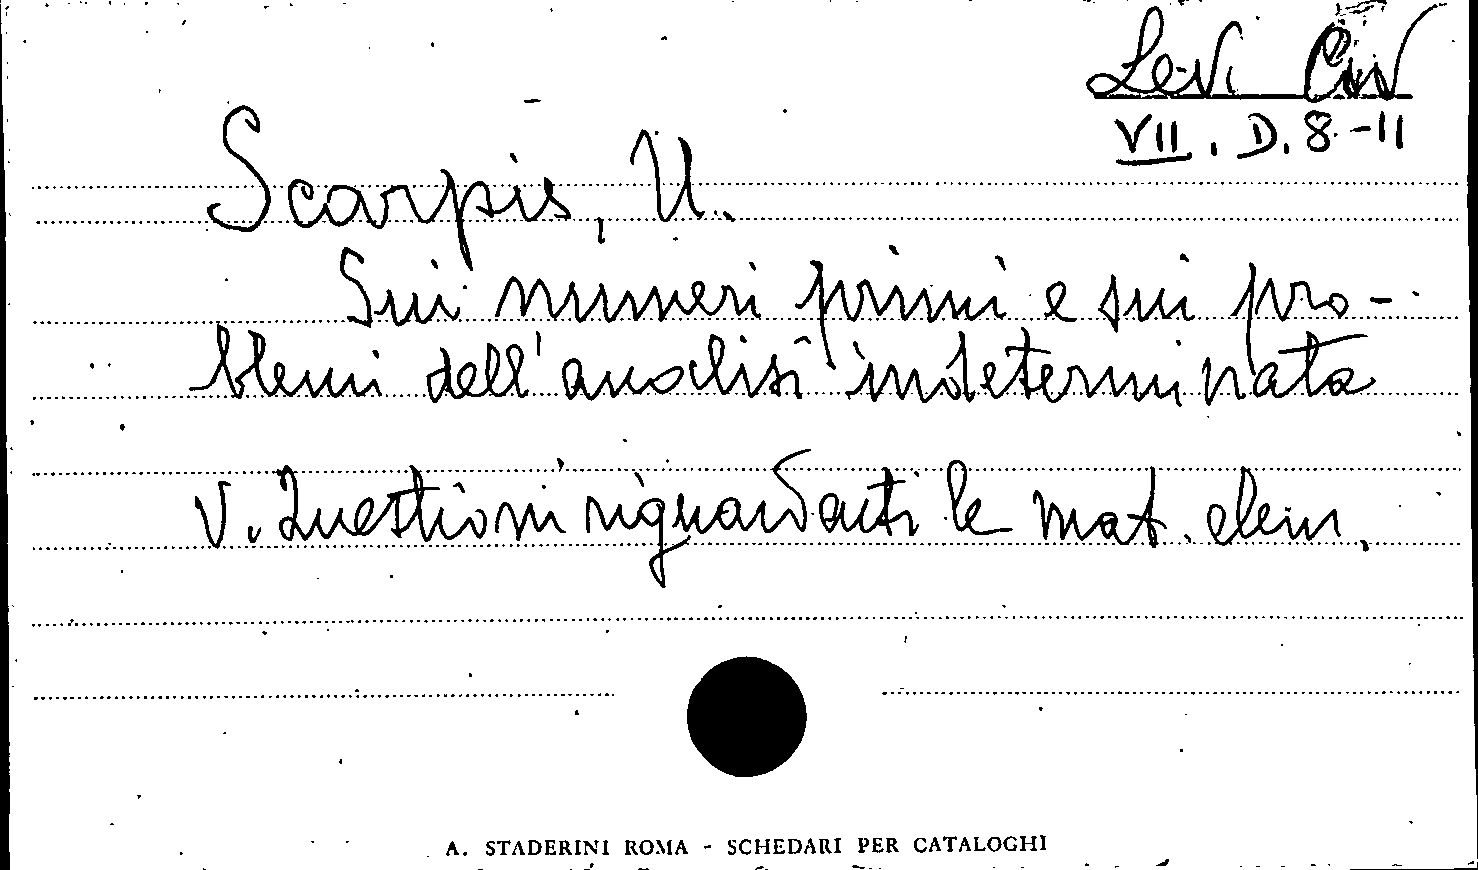 Levi Civ
VII. D. 8-11
Scarpis, U.
Sui numeri primi e sui pro-
blemi dell'analisi indeterminata
V. Questioni riguardanti le mat. elem.
A. STADERINI ROMA - SCHEDARI PER CATALOGHI